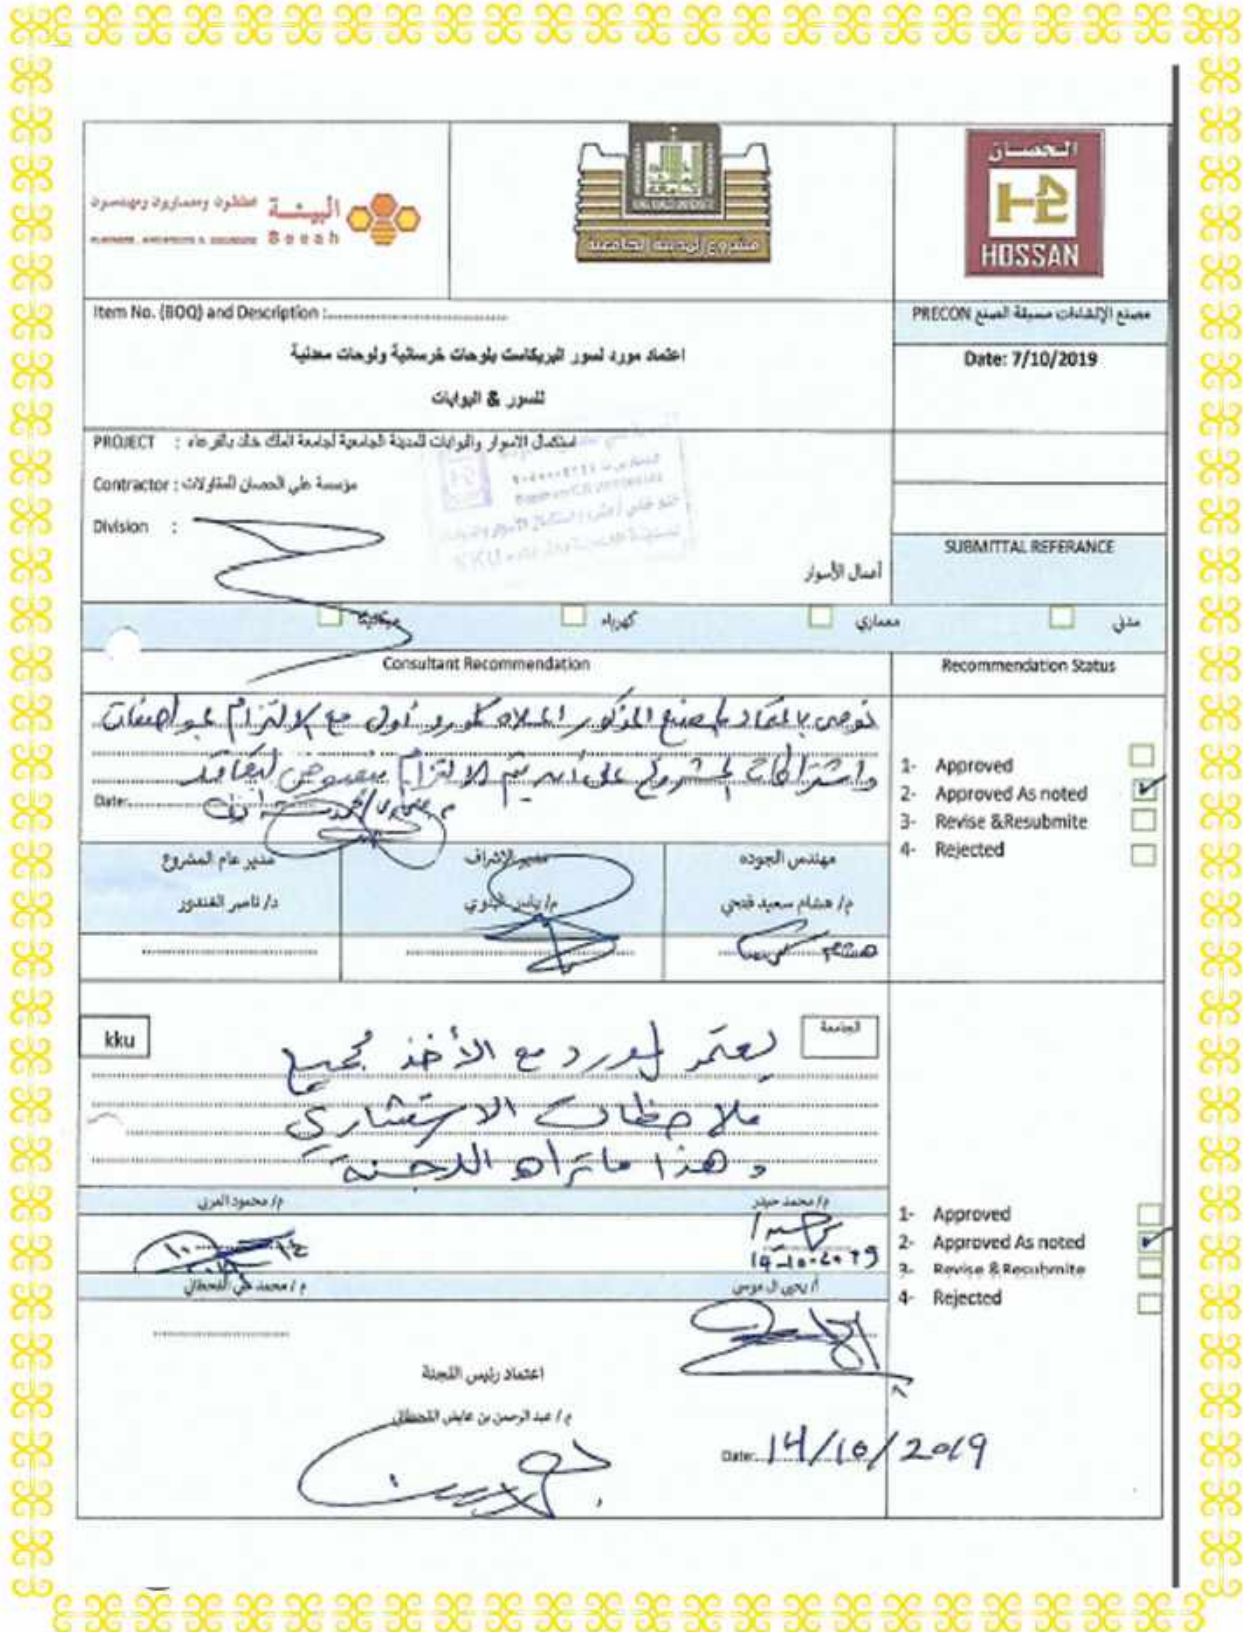 البيئة
مخططون ومعماريون ومهندسون
Beeah
PLANNERS, ARCHITECTS & ENGINEERS
KING KHALID UNIVERSITY
مشروع المدينة الجامعية
الحصان
HOSSAN
Item No. (BOQ) and Description :
اعتماد مورد لسور البريكاست بلوحات خرسانية ولوحات معدنية
للسور & البوابات
PRECON مصنع الإنشاءات مسبقة الصنع
Date: 7/10/2019
PROJECT : استكمال الاسوار والبوابات للمدينة الجامعية لجامعة الملك خالد بالفرعاء
Contractor : مؤسسة علي الحصان للمقاولات
Division :
أعمال الأسوار
SUBMITTAL REFERANCE
مدني
معماري
كهرباء
ميكانيكا
Consultant Recommendation
Recommendation Status
نوصي باعتماد المصنع المذكور اعلاه كمورد أول مع الالتزام بمواصفات
واشتراطات المشروع على أن يتم الالتزام بنصوص التعاقد
Date:
1- Approved
2- Approved As noted
3- Revise &Resubmite
4- Rejected
مهندس الجوده
مدير الإشراف
مدير عام المشروع
م/ هشام سعيد فتحي
م/ ياسر البدوي
د/ ناصر الغندور
هشام
kku
الجامعة
يعتمد المورد مع الأخذ بجميع
ملاحظات الاستشاري
وهذا ماتراه اللجنة
م/ محمد حيدر
م/ محمود العزبى
14-10-2019
أ/ يحيى ال موسى
م / محمد علي القحطاني
1- Approved
2- Approved As noted
3- Revise &Resubmite
4- Rejected
اعتماد رئيس اللجنة
م / عبد الرحمن بن عايض القحطاني
Date: 14/10/2019